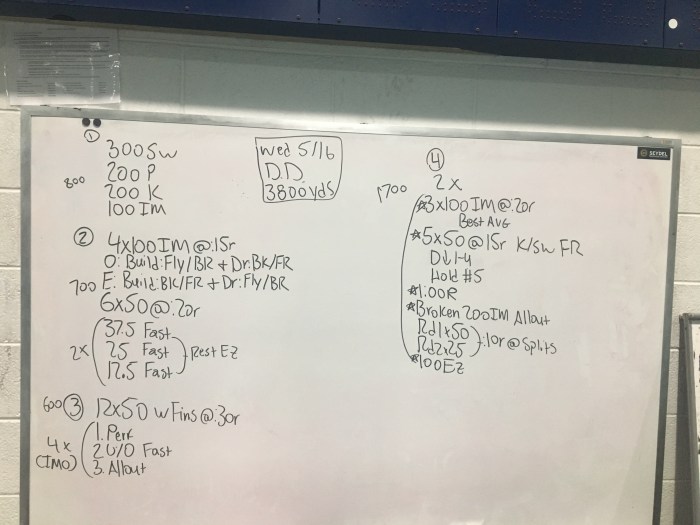 ①
300 SW
200 P
200 K
100 IM
800
Wed 5/16
D.D.
3800yds
② 4x100 IM @:15r
O: Build: Fly/BR + Dr: BK/FR
700 E: Build: BK/FR + Dr: Fly/BR
6x50 @:20r
37.5 Fast
2x 25 Fast Rest EZ
12.5 Fast
600 ③ 12x50 w Fins @:30r
1. Perf
4x 2 U/O Fast
(IMO) 3. Allout
④
2x
1700
☆3x100 IM @:20r
Best AVG
☆5x50 @15r K/SW FR
D1-4
Hold #5
☆1:00R
☆Broken 200 IM Allout
Rd1x50
Rd2x25 :10r @ Splits
☆100 EZ
SEYDEL